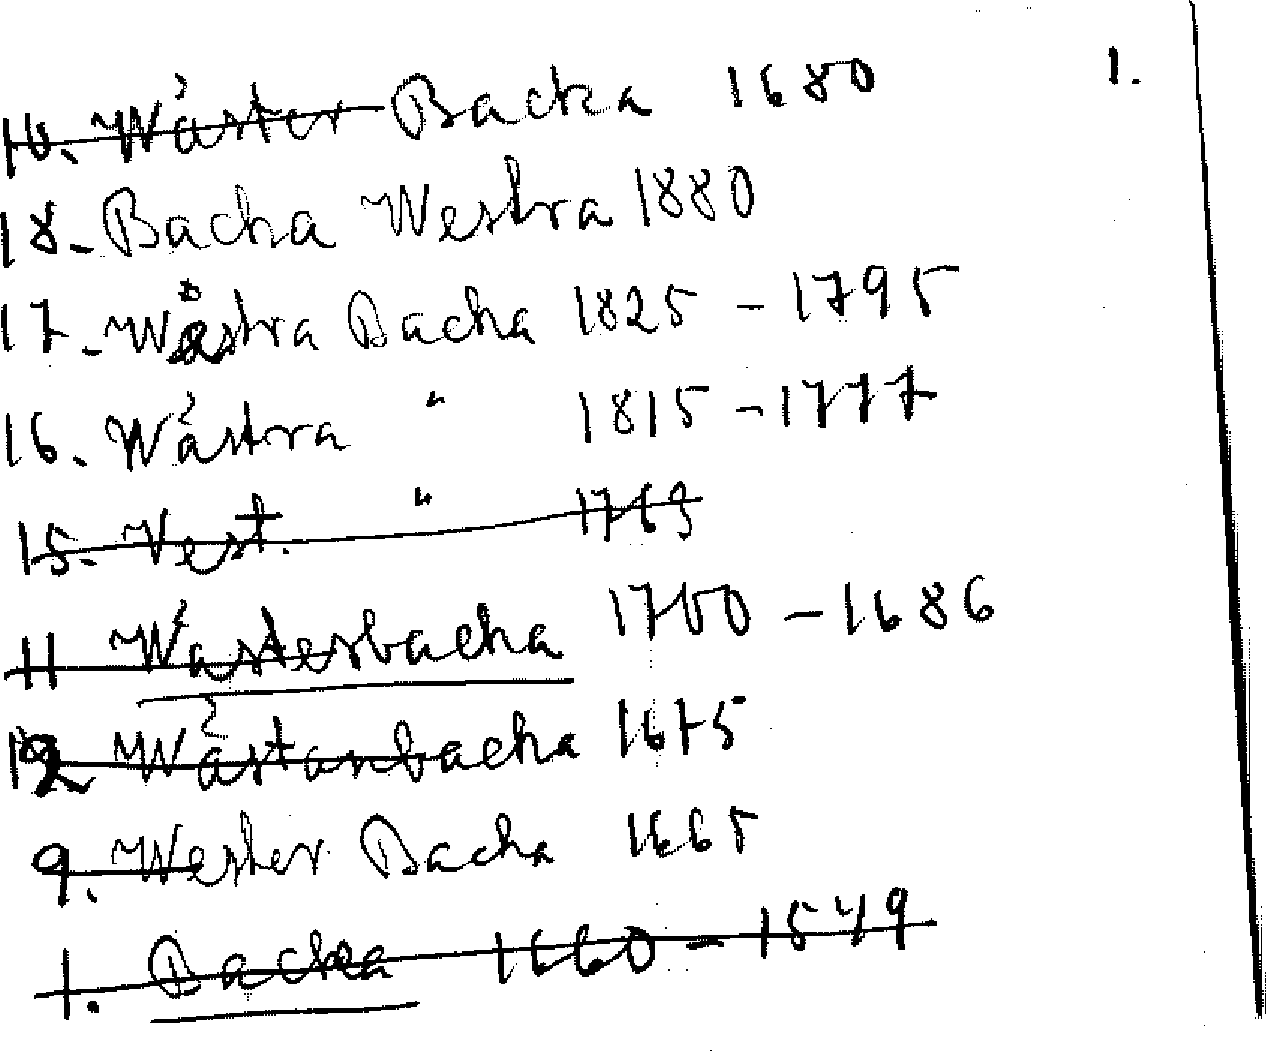 1.
10. Wäster Backa 1680
18. Backa Westra 1880
17. Wästra Backa 1825 - 1795
16. Wästra " 1815 - 1777
15. Vest. " 1763
11 Wästerbacka 1700 - 1686
12 Wästanbacka 1675
9. Wester Backa 1665
1. Backa 1660 - 1549